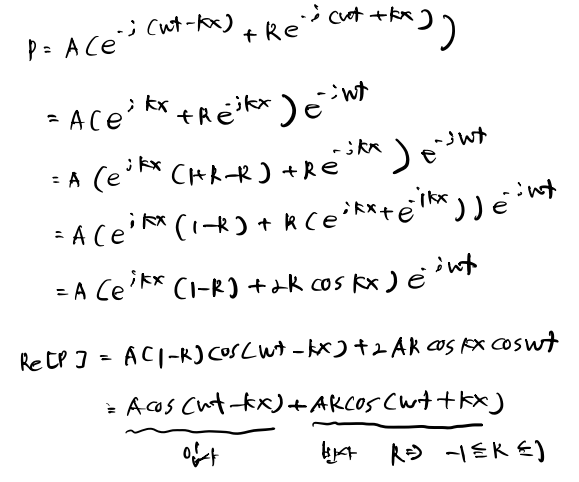 P = A(e^{-j(wt-kx)} + Re^{-j(wt+kx)})
= A(e^{jkx} + Re^{-jkx})e^{-jwt}
= A(e^{jkx}(1+R-R) + Re^{-jkx})e^{-jwt}
= A(e^{jkx}(1-R) + R(e^{jkx}+e^{-jkx}))e^{-jwt}
= A(e^{jkx}(1-R) + 2R cos kx)e^{-jwt}
Re[P] = A(1-R)cos(wt-kx) + 2AR cos kx cos wt
= A cos(wt-kx) + AR cos(wt+kx)
입사 반사 R ⇒ -1 ≦ R ≦ 1